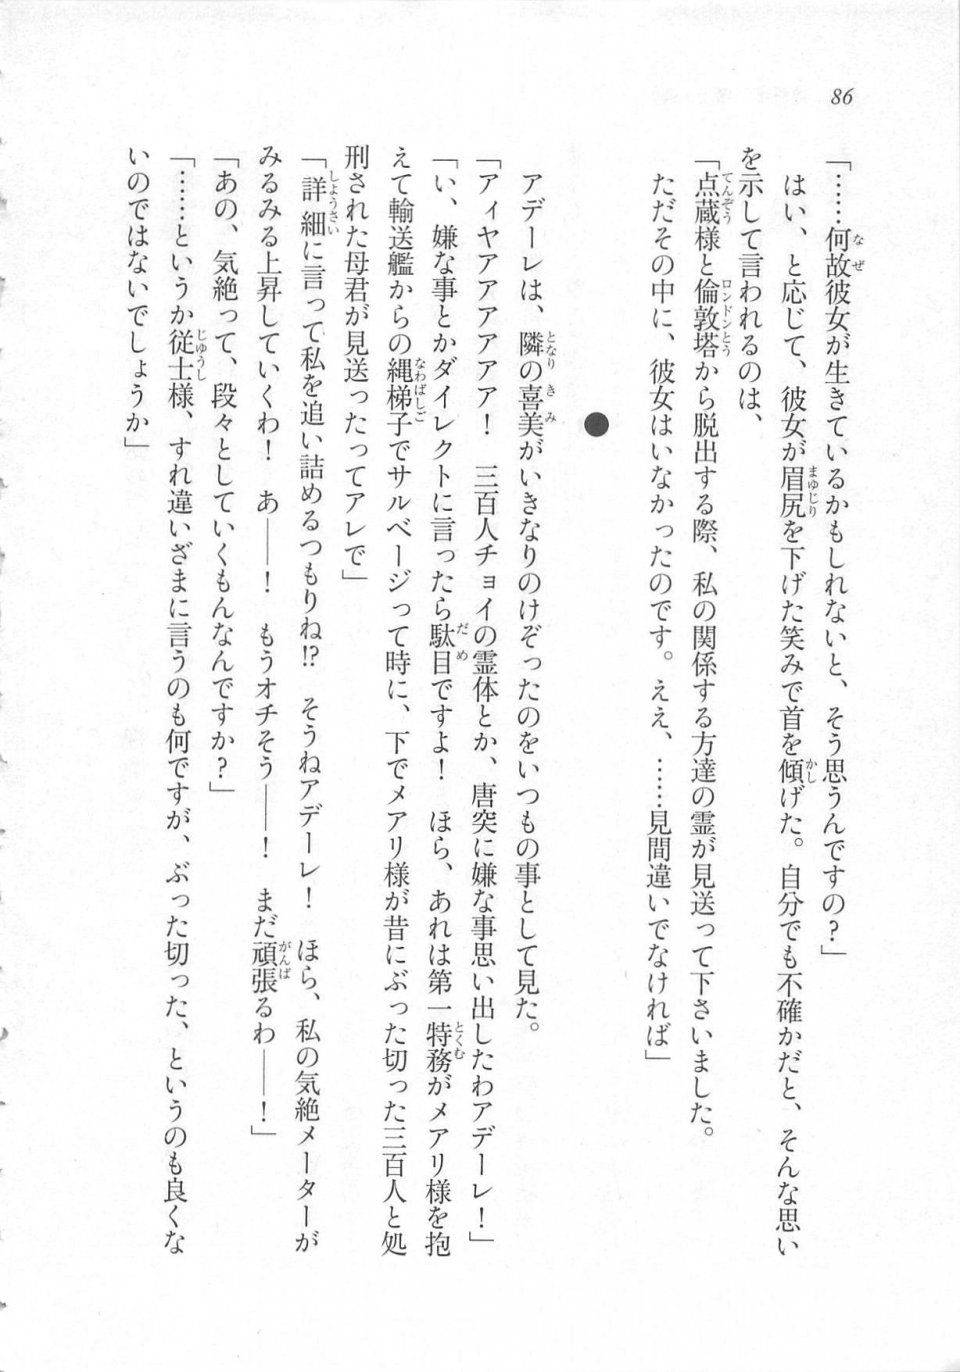 86
「……何故彼女が生きているかもしれないと、そう思うんですの？」
はい、と応じて、彼女が眉尻を下げた笑みで首を傾げた。自分でも不確かだと、そんな思い
を示して言われるのは、
「点蔵様と倫敦塔から脱出する際、私の関係する方達の霊が見送って下さいました。
ただその中に、彼女はいなかったのです。ええ、……見間違いでなければ」
●
アデーレは、隣の喜美がいきなりのけぞったのをいつもの事として見た。
「アィヤアアアアアア！　三百人チョイの霊体とか、唐突に嫌な事思い出したわアデーレ！」
「い、嫌な事とかダイレクトに言ったら駄目ですよ！　ほら、あれは第一特務がメアリ様を抱
えて輸送艦からの縄梯子でサルベージって時に、下でメアリ様が昔にぶった切った三百人と処
刑された母君が見送ったってアレで」
「詳細に言って私を追い詰めるつもりね!?　そうねアデーレ！　ほら、私の気絶メーターが
みるみる上昇していくわ！　あ――！　もうオチそう――！　まだ頑張るわ――！」
「あの、気絶って、段々としていくもんなんですか？」
「……というか従士様、すれ違いざまに言うのも何ですが、ぶった切った、というのも良くな
いのではないでしょうか」